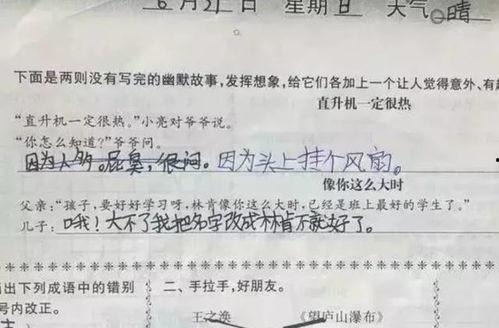 6月21日 星期日 天气 晴
下面是两则没有写完的幽默故事,发挥想象,给它们各加上一个让人觉得意外、有
直升机一定很热
“直升机一定很热。”小亮对爷爷说。
“你怎么知道?”爷爷问。
因为人多。屁臭,很闷。因为头上挂个风扇。
像你这么大时
父亲:“孩子,要好好学习呀,林肯像你这么大时,已经是班上最好的学生了。”
儿子:哦!大不了我把名字改成林肯不就好了。
出下列成语中的错别 二、手拉手,好朋友。
号内改正。 王之涣 《望庐山瀑布》